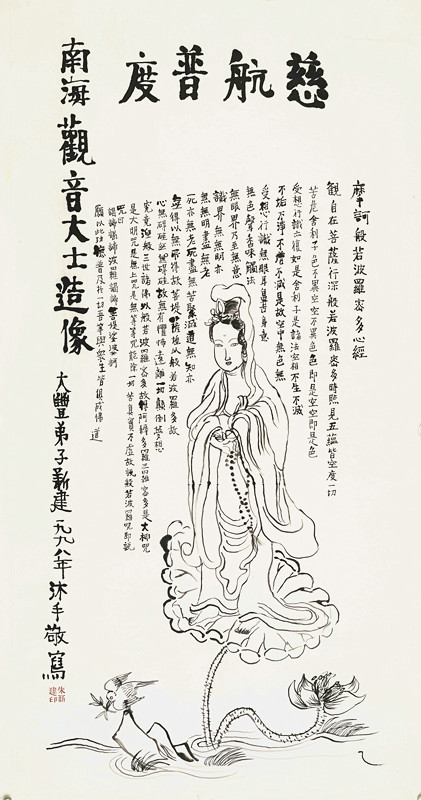 慈航普度
摩訶般若波羅密多心經
觀自在菩薩行深般若波羅密多時照見五蘊皆空度一切
苦厄舍利子色不異空空不異色色即是空空即是色
受想行識亦復如是舍利子是諸法空相不生不滅
不垢不淨不增不減是故空中無色無
受想行識無眼耳鼻舌身意
無色聲香味觸法
無眼界乃至無意
識界無無明亦
無無明盡無老
死亦無老死盡無苦集滅道無知亦
無得以無所得故菩提薩埵依般若波羅多故
心無碍無碍故無有懼怖遠離一切顛倒夢想
究竟涅般三世諸佛以般若波羅多故得阿耨多羅三密多是大神咒
是大明咒是無上咒是無等等咒能除一切苦真實不虛故說般若波羅咒即說
咒曰
揭諦揭諦波羅揭諦菩提婆訶
願以此功德普及於一切吾等與眾生皆俱成佛道
南海觀音大士造像
大豐弟子新建一九九八年沐手敬寫
朱新建印